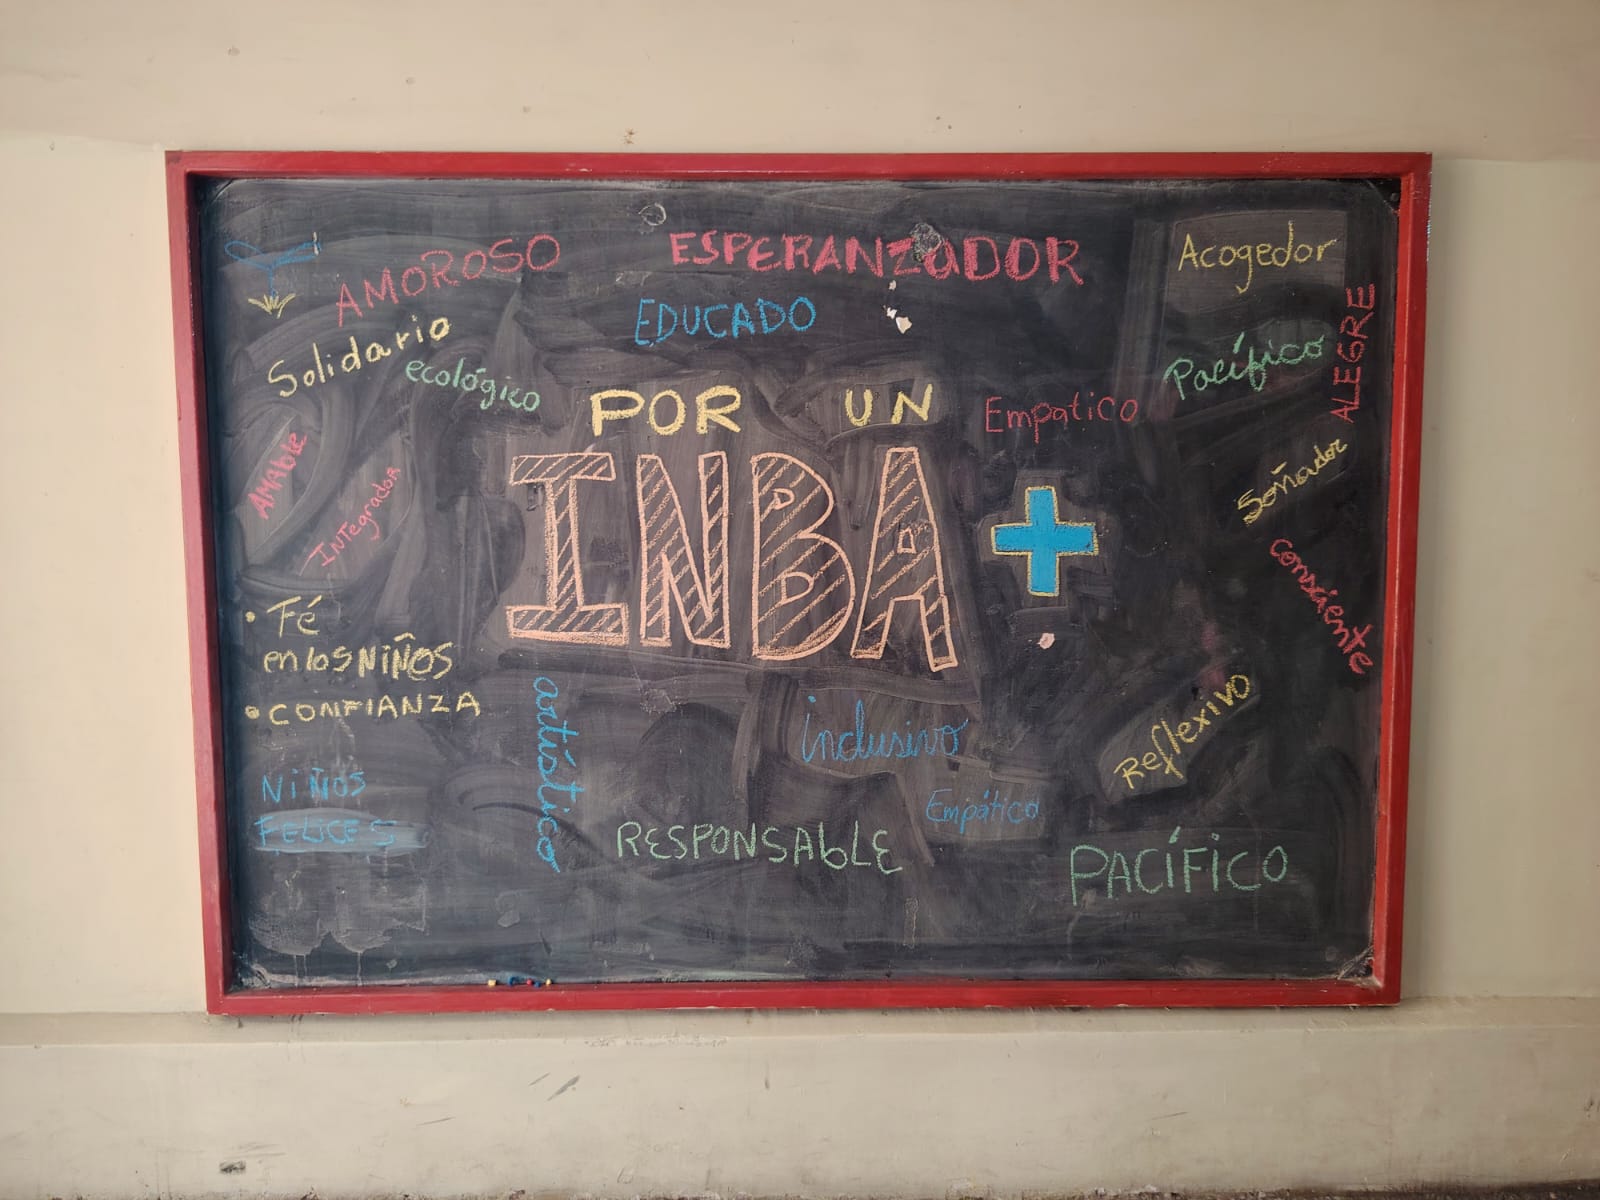 AMOROSO
ESPERANZADOR
Acogedor
Solidario
EDUCADO
ALEGRE
ecológico
Pacífico
POR UN
Empatico
AMAble
INTegrador
INBA+
Soñador
consciente
• Fé
en los NIÑOS
• CONFIANZA
artístico
inclusivo
Reflexivo
NIÑOS
FELICES
RESPONSAbLE
Empático
PACÍFICO